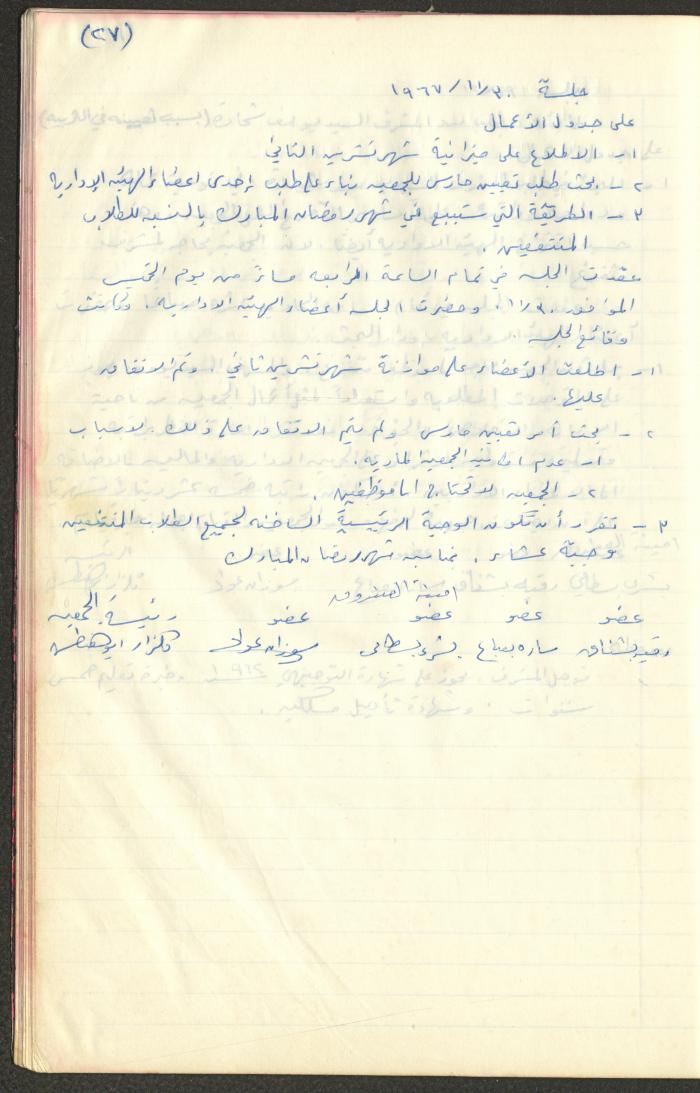 (٢٧)
جلسة ٣٠/١١/١٩٦٧
على جدول الأعمال
١ - الاطلاع على ميزانية شهر تشرين الثاني
٢ - بحث طلب تعيين حارس للجمعيه بناء على طلب إحدى اعضاء الهيئه الإداريه
٣ - الطريقة التي ستتبع في شهر رمضان المبارك بالنسبه للطلاب
المنتفعين .
عقدت الجلسه في تمام الساعة الرابعه مساءً من يوم الخميس
الموافق ٣٠/١١ . وحضرت الجلسه أعضاء الهيئه الاداريه . وكانت
وقائع الجلسه
١ - اطلعت الأعضاء على موازنة شهر تشرين ثاني وتم الاتفاق
عليها .
٢ - بحث أمر تعيين حارس ولم يتم الاتفاق على ذلك لاسباب
١ - عدم الجمعيه الماديه .
٢ - الجمعيه لا تحتاج الى موظفين .
٣ - تقرر أن تكون الوجبة الرئيسية الساخنه لجميع الطلاب المنتفعين
وجبة عشاء . بمناسبه شهر رمضان المبارك
امينة الصندوق
عضو عضو عضو عضو رئيسة الجمعيه
رقيه بشناق ساره بعباع بشرى بسطامي سوزان